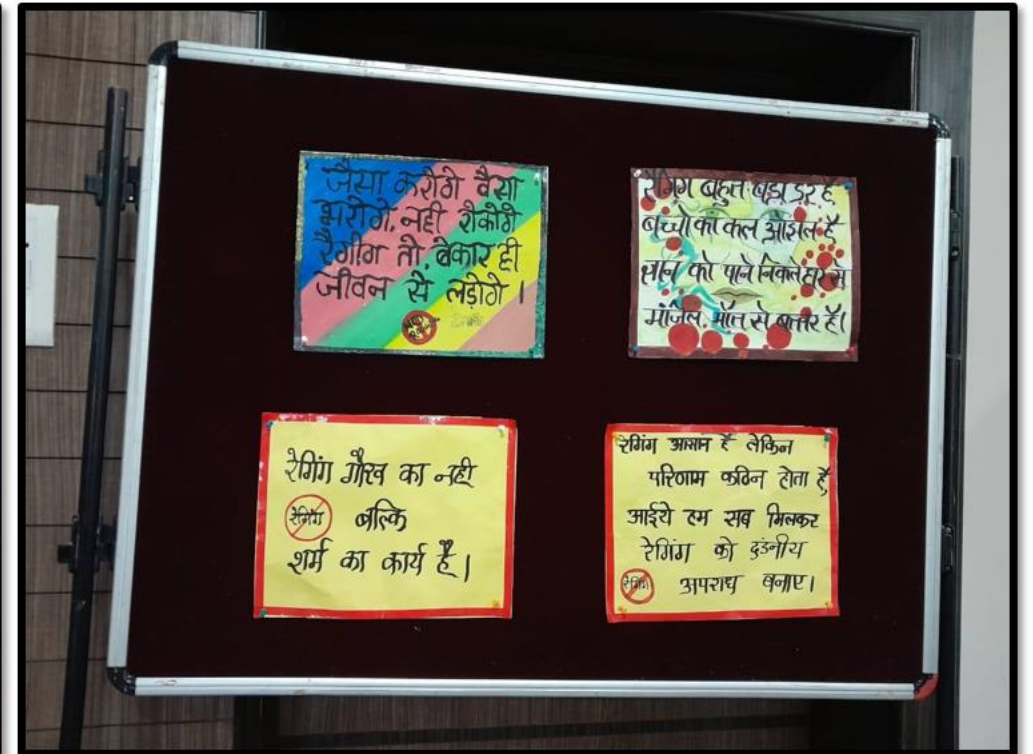 जैसा करोगे वैसा
भरोगे, नही रोकोगे
रैगींग तो, बेकार ही
जीवन से लड़ोगे ।
रैगिंग बहुत बड़ा डर है,
बच्चो का कल ओझल है
ज्ञान को पाने निकले घर से
मंजिल, मौत से बत्तर है।
रेगिंग गौरव का नही
रेगिंग बल्कि
शर्म का कार्य है।
रेगिंग आसान है लेकिन
परिणाम कठिन होता है,
आईये हम सब मिलकर
रेगिंग को दंडनीय
रेगिंग अपराध बनाए।